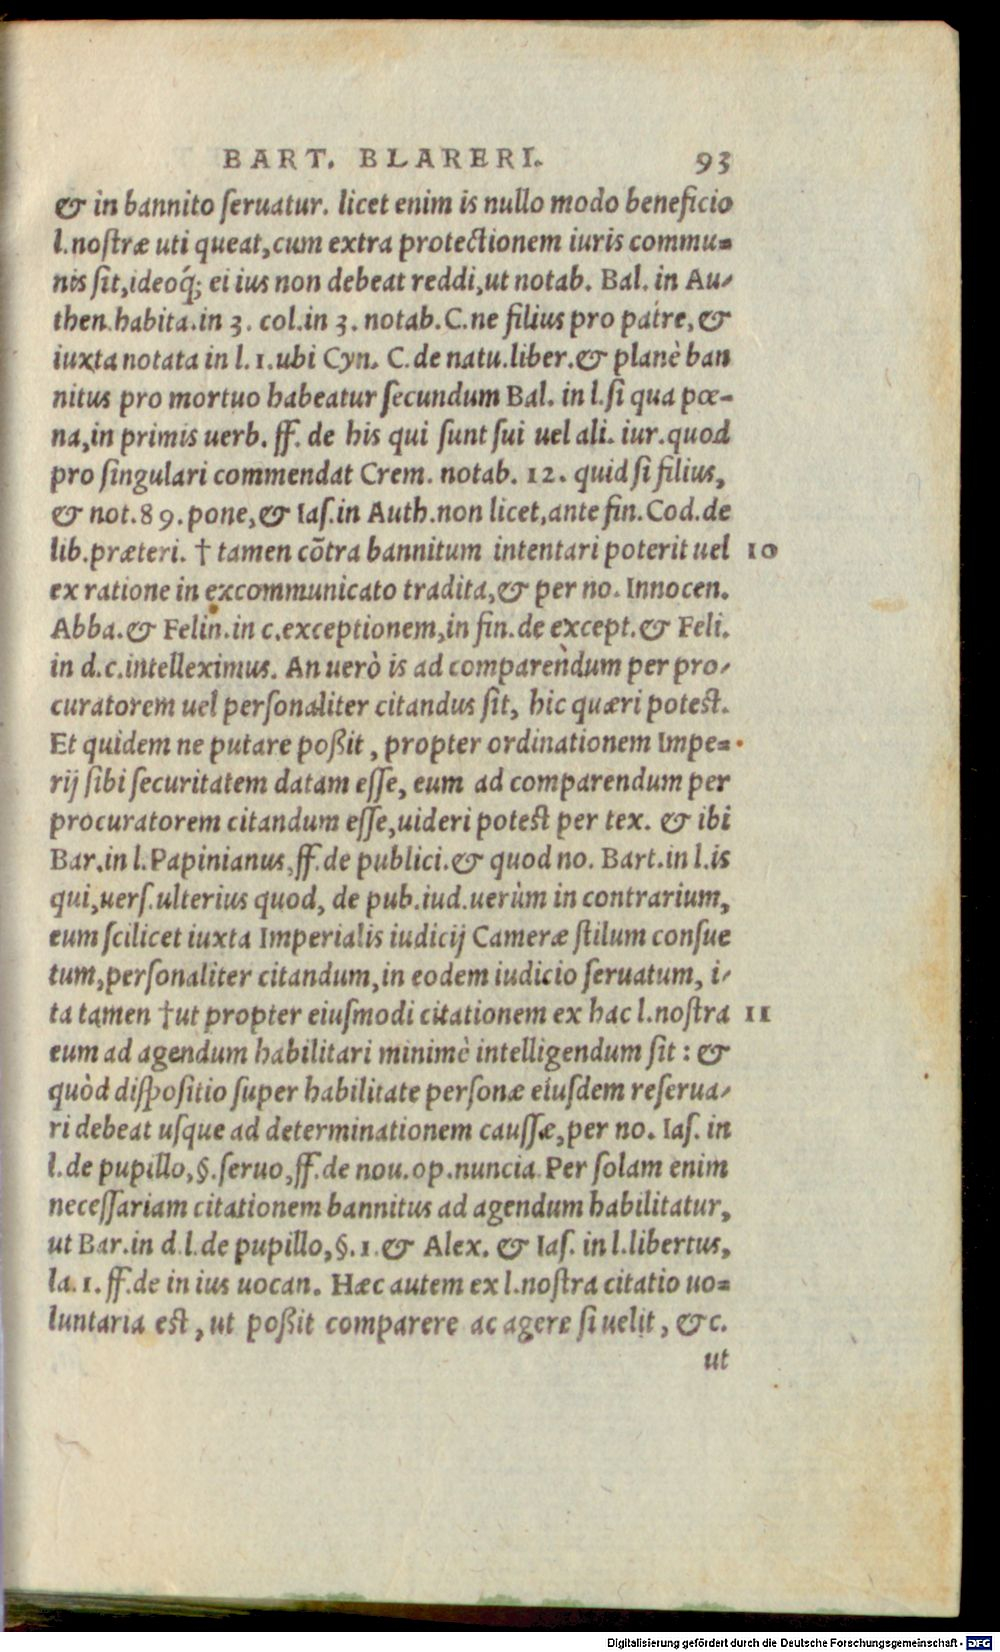 BART. BLARERI. 93
& in bannito ſeruatur. licet enim is nullo modo beneficio
l.noſtræ uti queat,cum extra protectionem iuris commu=
nis ſit,ideoq́; ei ius non debeat reddi,ut notab. Bal. in Au-
then.habita.in 3. col.in 3. notab.C.ne filius pro patre, &
iuxta notata in l.1.ubi Cyn. C.de natu.liber.& planè ban
nitus pro mortuo habeatur ſecundum Bal. in l.ſi qua pœ-
na,in primis uerb. ff. de his qui ſunt ſui uel ali. iur.quod
pro ſingulari commendat Crem. notab. 12. quid ſi filius,
& not.89.pone,& Iaſ.in Auth.non licet,ante fin.Cod.de
lib.præteri. † tamen cõtra bannitum intentari poterit uel 10
ex ratione in excommunicato tradita,& per no. Innocen.
Abba.& Felin.in c.exceptionem,in fin.de except.& Feli.
in d.c.intelleximus. An uerò is ad comparendum per pro-
curatorem uel perſonaliter citandus ſit, hic quæri poteſt.
Et quidem ne putare poßit, propter ordinationem Impe=
rij ſibi ſecuritatem datam eſſe, eum ad comparendum per
procuratorem citandum eſſe,uideri poteſt per tex. & ibi
Bar.in l.Papinianus,ff.de publici.& quod no. Bart.in l.is
qui,uerſ.ulterius quod, de pub.iud.uerùm in contrarium,
eum ſcilicet iuxta Imperialis iudicij Cameræ ſtilum conſue
tum,perſonaliter citandum,in eodem iudicio ſeruatum, i-
ta tamen †ut propter eiuſmodi citationem ex hac l.noſtra 11
eum ad agendum habilitari minimè intelligendum ſit : &
quòd diſpoſitio ſuper habilitate perſonæ eiuſdem reſerua-
ri debeat uſque ad determinationem cauſſæ,per no. Iaſ. in
l.de pupillo,§.ſeruo,ff.de nou.op.nuncia.Per ſolam enim
neceſſariam citationem bannitus ad agendum habilitatur,
ut Bar.in d.l.de pupillo,§.1.& Alex. & Iaſ. in l.libertus,
la.1.ff.de in ius uocan. Hæc autem ex l.noſtra citatio uo=
luntaria eſt, ut poßit comparere ac agere ſi uelit, &c.
ut
Digitalisierung gefördert durch die Deutsche Forschungsgemeinschaft - DFG